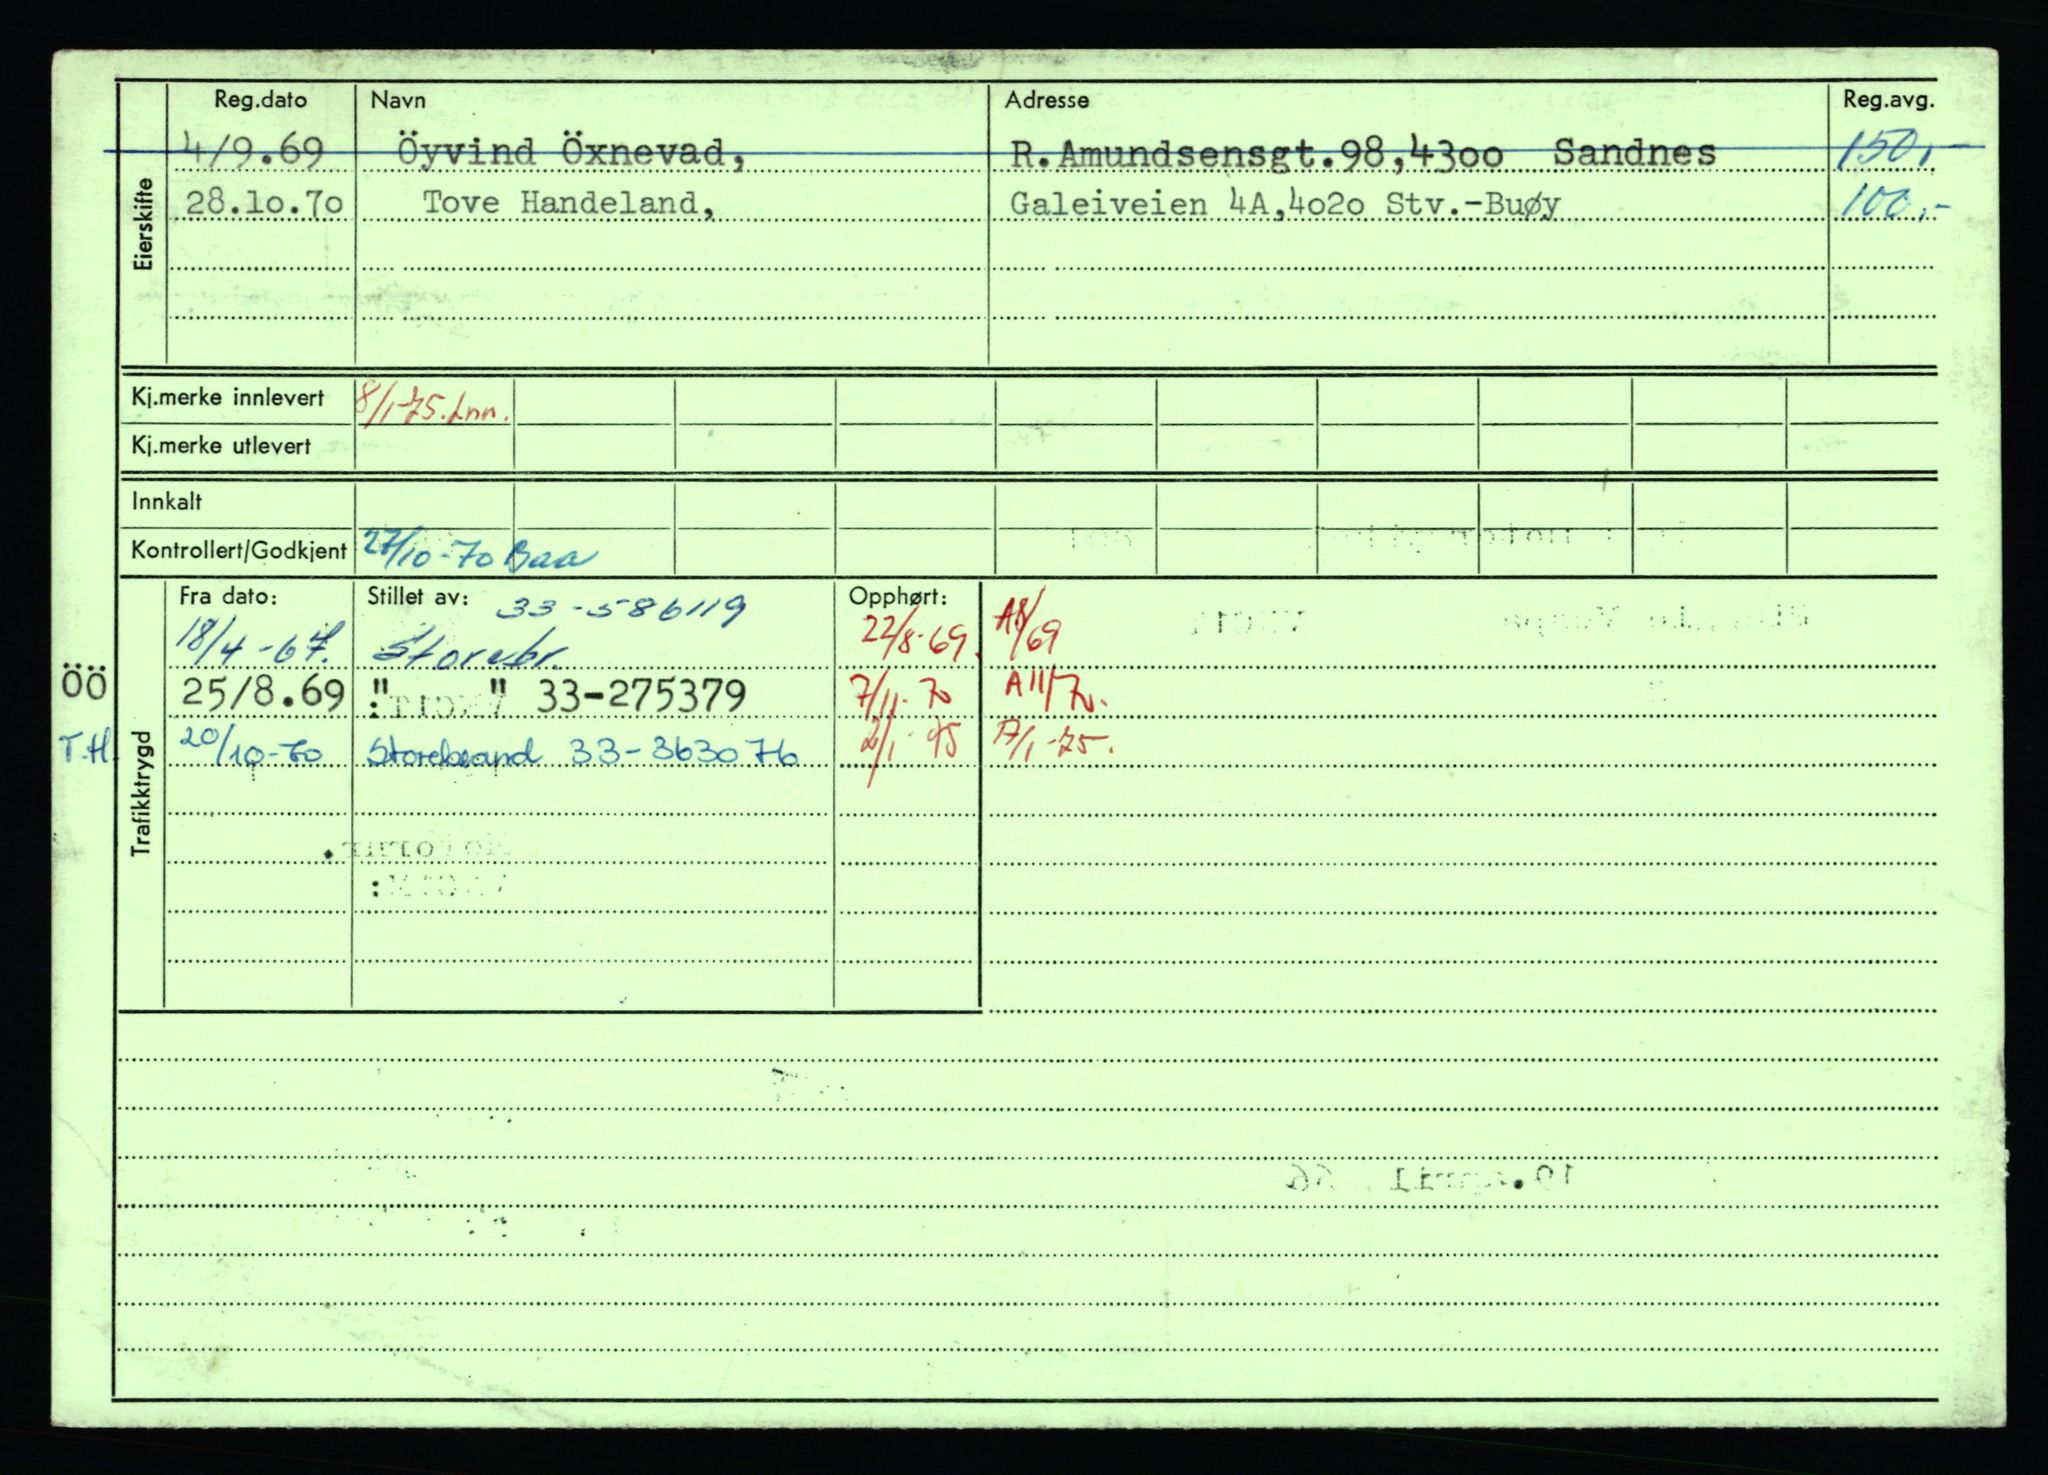 Reg.dato Navn Adresse Reg.avg.
4/9.69 Öyvind Öxnevad, R.Amundsensgt.98,4300 Sandnes 150,-
28.10.70 Tove Handeland, Galeiveien 4A,4020 Stv.-Buøy 100,-
Eierskifte
Kj.merke innlevert 8/1-75. Inn.
Kj.merke utlevert
Innkalt
Kontrollert/Godkjent 27/10-70 Baa
Fra dato: Stillet av: 33-586119 Opphørt:
18/4-67. Storebr. 22/8-69. A8/69
ÖÖ 25/8.69 " " 33-275379 7/11-70 A11/70.
T.H. 20/10-70 Storebrand 33-363076 2/1-75 17/1-75.
Trafikktrygd
Motornr.
19.april 66